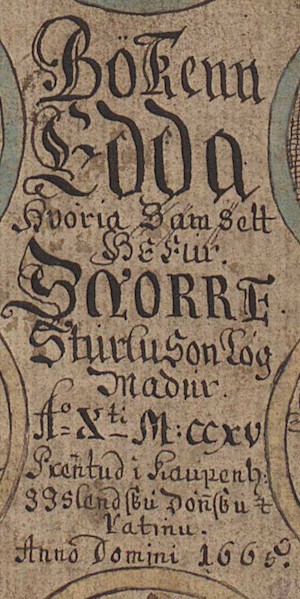 Bökenn
Edda
Hvoria Sam Sett
Hefur.
SNORRE
Sturlu Son Løg
Madur.
Aº Xti M: CCXV
Pren̄tud i Kaupenh:
IJslendsku Dōnsku &
Latinu.
Anno Domini 1665.